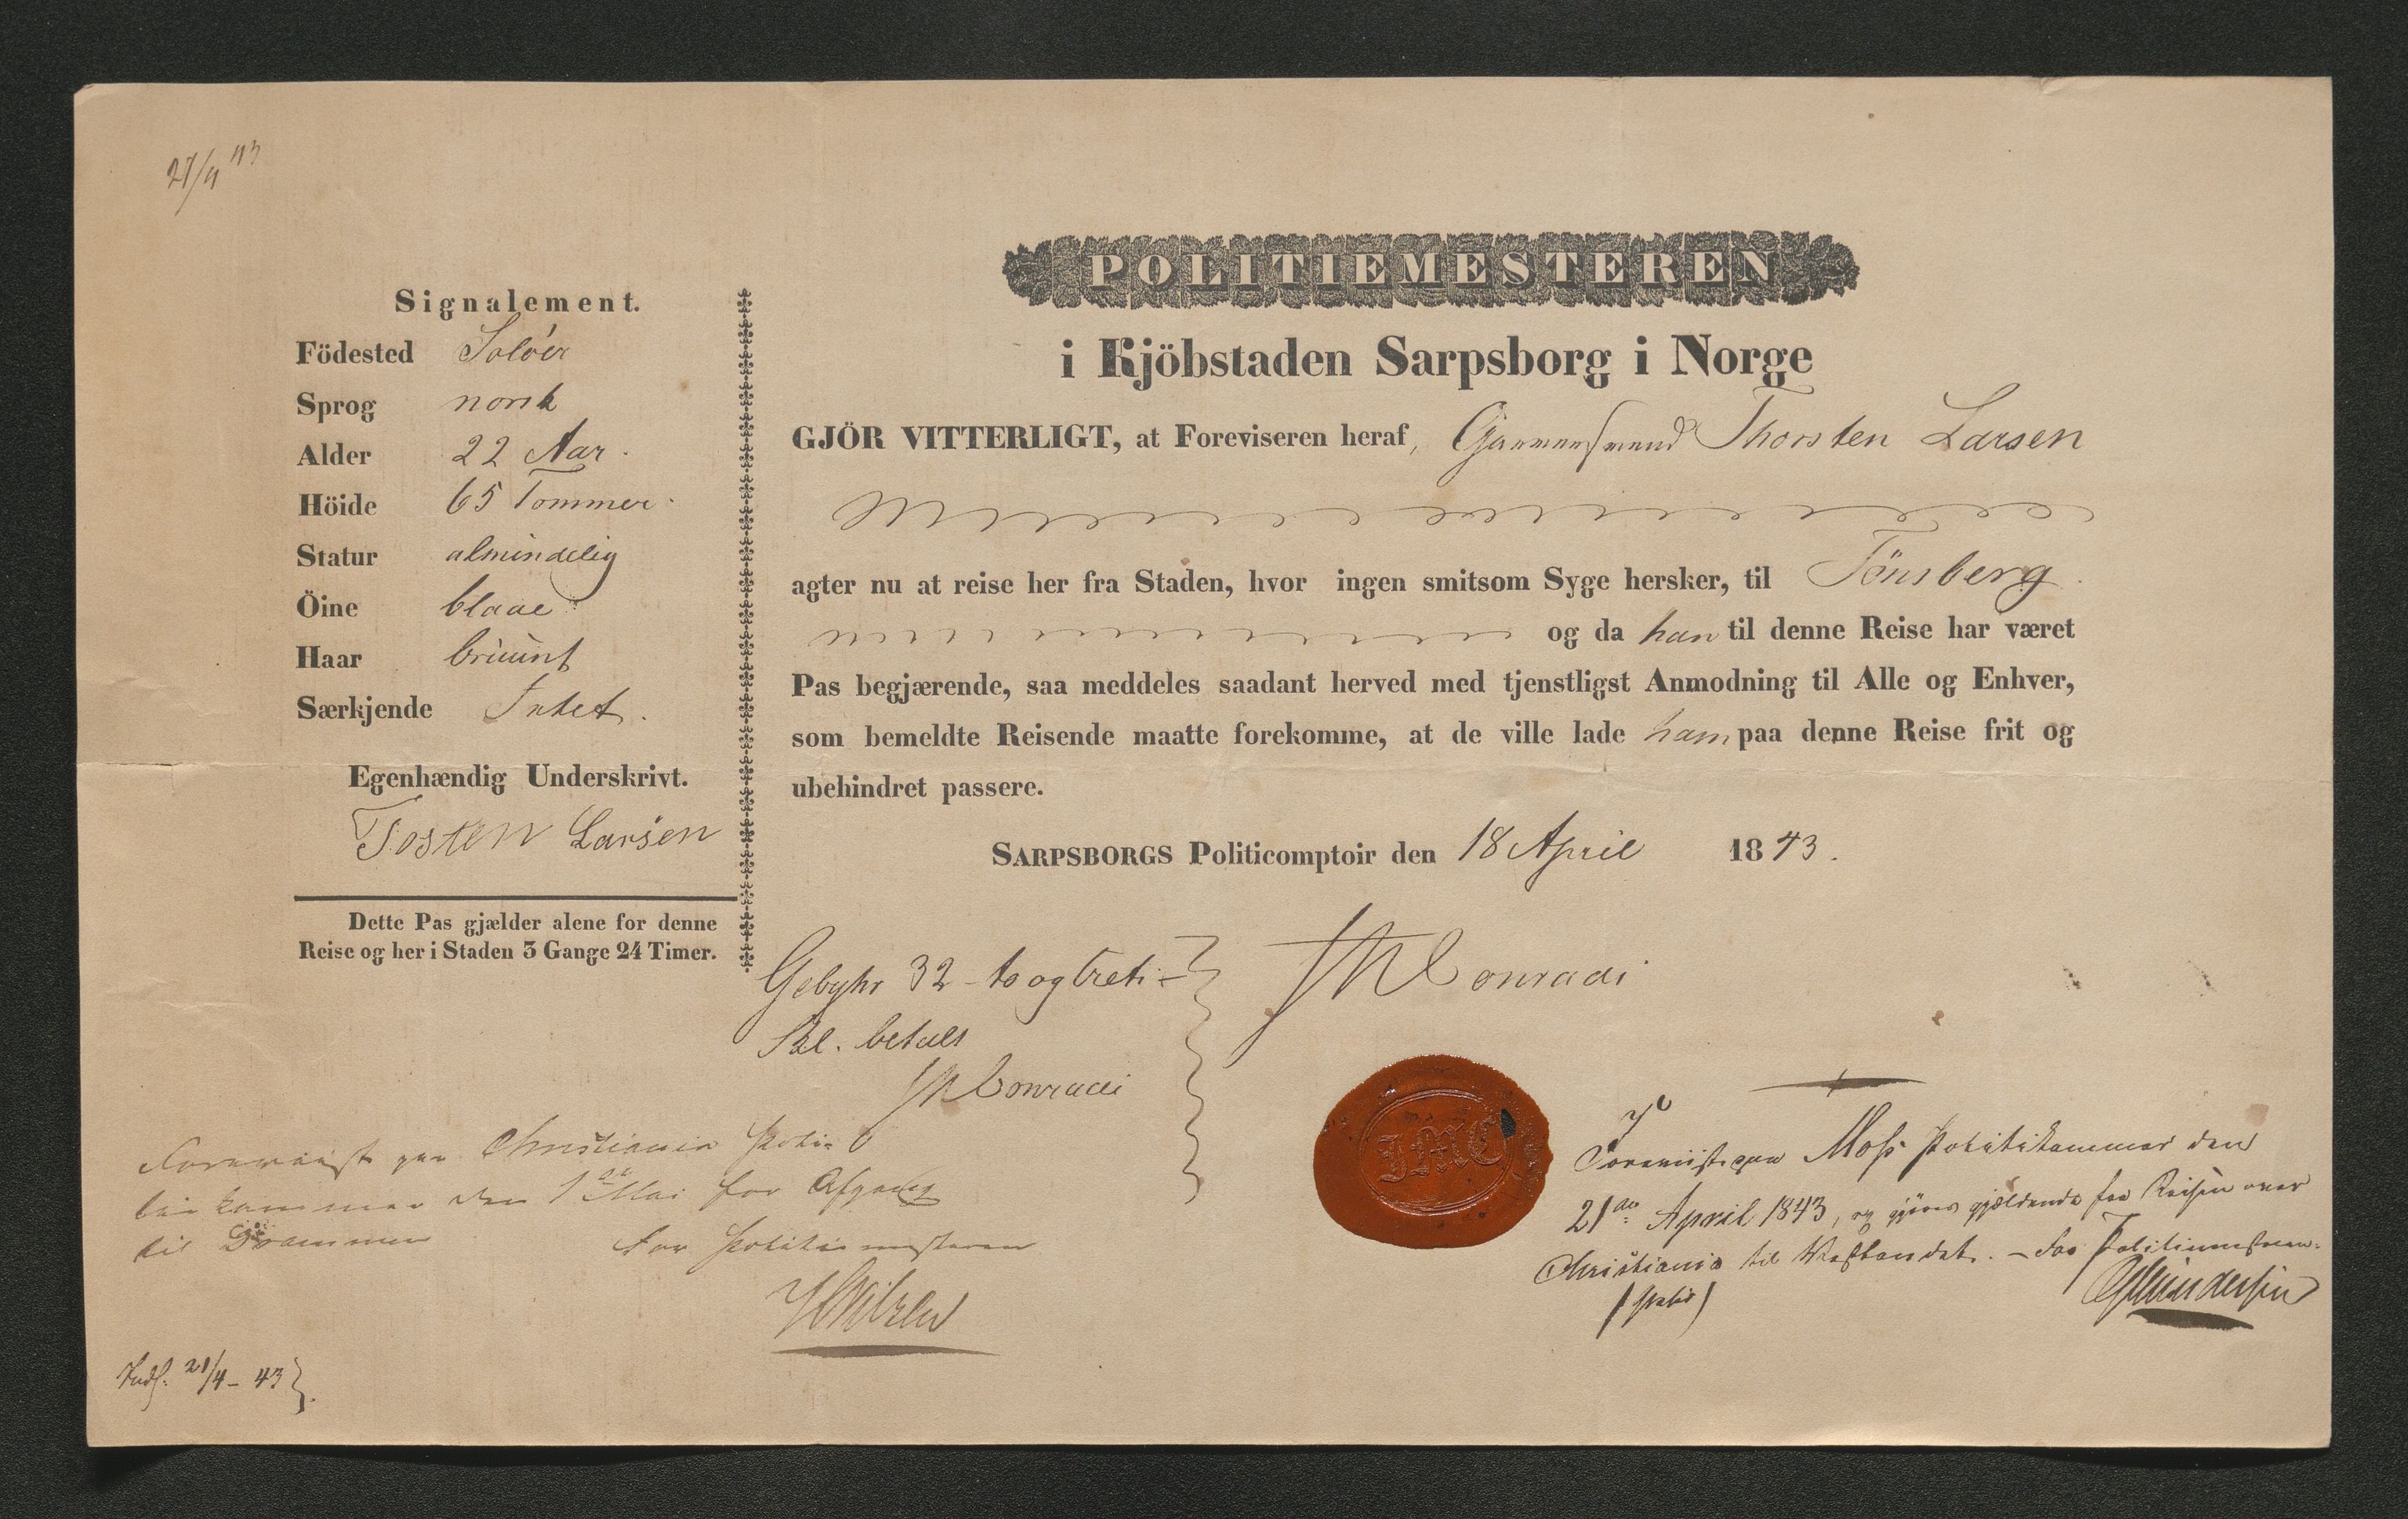 27/4 43
Signalement.
Födested Solöer
Sprog norsk
Alder 22 Aar.
Höide 65 Tommer.
Statur almindelig
Öine blaae
Haar bruunt
Særkjende Intet.
Egenhændig Underskrivt.
Tosten Larsen
Dette Pas gjælder alene for denne
Reise og her i Staden 3 Gange 24 Timer.
POLITIEMESTEREN
i Kjöbstaden Sarpsborg i Norge
GJÖR VITTERLIGT, at Foreviseren heraf, Garversvend Thorsten Larsen
agter nu at reise her fra Staden, hvor ingen smitsom Syge hersker, til Tönsberg.
og da han til denne Reise har været
Pas begjærende, saa meddeles saadant herved med tjenstligst Anmodning til Alle og Enhver,
som bemeldte Reisende maatte forekomme, at de ville lade ham paa denne Reise frit og
ubehindret passere.
SARPSBORGS Politicomptoir den 18 April 1843.
Gebyhr 32 - to og treti -
Skl. betalt
JMConradi
JMConradi
JMC
Foreviist paa Moss Politikammer den
21de April 1843, og gjöres gjældende for Reisen over
Christiania til Vestlandet. - For Politimesteren.
Foreviist paa Christiania Poli-
tiekammer den 1ste Mai for Afgang
til Drammen
For Politiemesteren
Indf. 21/4 - 43